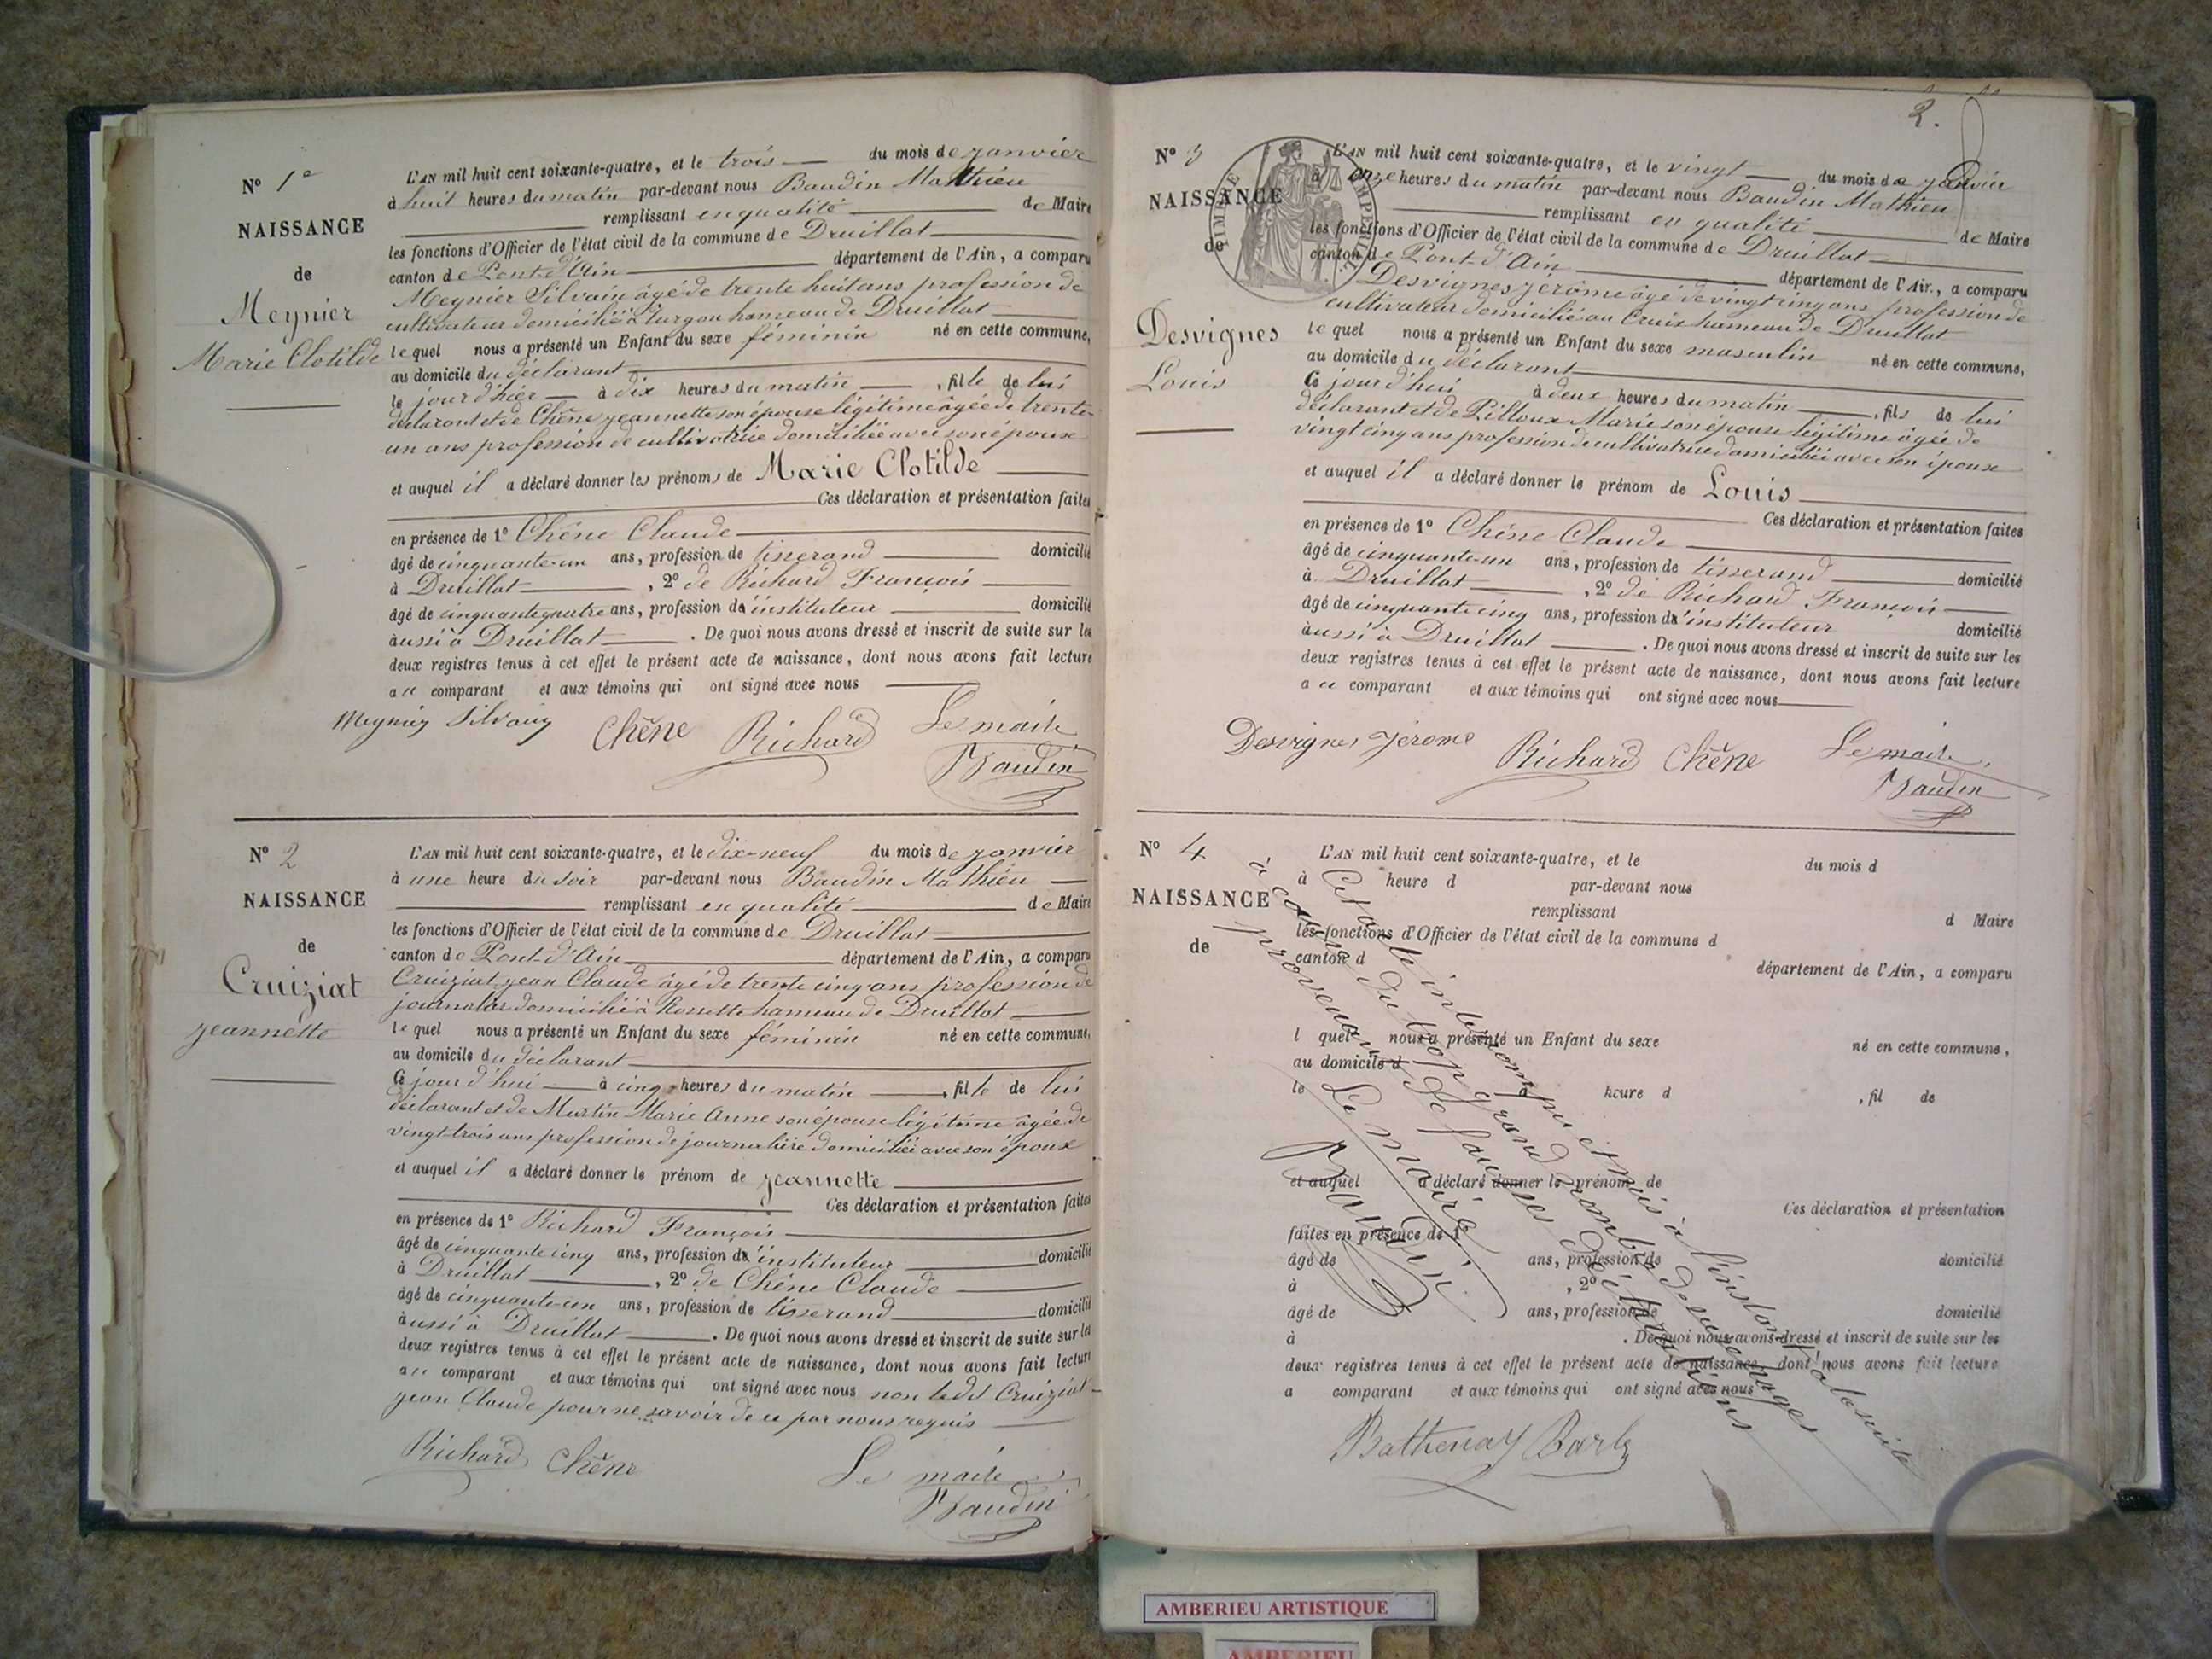 N° 1er
NAISSANCE
de
Meynier
Marie Clotilde
L'AN mil huit cent soixante-quatre, et le trois du mois de janvier
à huit heures du matin par-devant nous Baudin Mathieu
remplissant en qualité de Maire
les fonctions d'Officier de l'état civil de la commune de Druillat
canton de Pont-d'Ain département de l'Ain, a comparu
Meynier Silvain âgé de trente huit ans profession de
cultivateur domicilié à turgon hameau de Druillat
lequel nous a présenté un Enfant du sexe féminin né en cette commune,
au domicile du déclarant
le jour d'hier à dix heures du matin, fille de lui
déclarant et de Chêne jeannette son épouse légitime âgée de trente
un ans profession de cultivatrice domiciliée avec son époux
et auquel il a déclaré donner les prénoms de Marie Clotilde
Ces déclaration et présentation faites
en présence de 1° Chêne Claude
âgé de cinquante-un ans, profession de tisserand domicilié
à Druillat, 2° de Richard François
âgé de cinquante quatre ans, profession d'instituteur domicilié
aussi à Druillat. De quoi nous avons dressé et inscrit de suite sur les
deux registres tenus à cet effet le présent acte de naissance, dont nous avons fait lecture
au comparant et aux témoins qui ont signé avec nous
Meynier Silvain Chêne Richard Le maire
Baudin
N° 2
NAISSANCE
de
Cruiziat
jeannette
L'AN mil huit cent soixante-quatre, et le dix-neuf du mois de janvier
à une heure du soir par-devant nous Baudin Mathieu
remplissant en qualité de Maire
les fonctions d'Officier de l'état civil de la commune de Druillat
canton de Pont-d'Ain département de l'Ain, a comparu
Cruiziat jean Claude âgé de trente cinq ans profession de
journalier domicilié à Rossette hameau de Druillat
lequel nous a présenté un Enfant du sexe féminin né en cette commune,
au domicile du déclarant
Ce jour d'hui à cinq heures du matin, fille de lui
déclarant et de Martin Marie Anne son épouse légitime âgée de
vingt-trois ans profession de journalière domiciliée avec son époux
et auquel il a déclaré donner le prénom de jeannette
Ces déclaration et présentation faites
en présence de 1° Richard François
âgé de cinquante cinq ans, profession d'instituteur domicilié
à Druillat, 2° de Chêne Claude
âgé de cinquante-un ans, profession de tisserand domicilié
aussi à Druillat. De quoi nous avons dressé et inscrit de suite sur les
deux registres tenus à cet effet le présent acte de naissance, dont nous avons fait lecture
au comparant et aux témoins qui ont signé avec nous non ledit Cruiziat
jean Claude pour ne savoir de ce par nous requis
Richard Chêne Le maire
Baudin
2.
TIMBRE IMPERIAL
N° 3
NAISSANCE
de
Desvignes
Louis
L'AN mil huit cent soixante-quatre, et le vingt du mois de janvier
à onze heures du matin par-devant nous Baudin Mathieu
remplissant en qualité de Maire
les fonctions d'Officier de l'état civil de la commune de Druillat
canton de Pont-d'Ain département de l'Ain, a comparu
Desvignes jérôme âgé de vingt cinq ans profession de
cultivateur domicilié au Cruix hameau de Druillat
lequel nous a présenté un Enfant du sexe masculin né en cette commune,
au domicile du déclarant
Ce jour d'hui à deux heures du matin, fils de lui
déclarant et de Pilloux Marie son épouse légitime âgée de
vingt cinq ans profession de cultivatrice domiciliée avec son époux
et auquel il a déclaré donner le prénom de Louis
Ces déclaration et présentation faites
en présence de 1° Chêne Claude
âgé de cinquante-un ans, profession de tisserand domicilié
à Druillat, 2° de Richard François
âgé de cinquante cinq ans, profession d'instituteur domicilié
aussi à Druillat. De quoi nous avons dressé et inscrit de suite sur les
deux registres tenus à cet effet le présent acte de naissance, dont nous avons fait lecture
au comparant et aux témoins qui ont signé avec nous
Desvignes Jerome Richard Chêne Le maire
Baudin
N° 4
NAISSANCE
de
L'AN mil huit cent soixante-quatre, et le du mois d
à heure d par-devant nous
remplissant d Maire
les fonctions d'Officier de l'état civil de la commune d
canton d département de l'Ain, a comparu
l quel nous a présenté un Enfant du sexe né en cette commune,
au domicile d
le à heure d, fil de
et auquel a déclaré donner le prénom de
Ces déclaration et présentation
faites en présence de 1°
âgé de ans, profession de domicilié
à, 2°
âgé de ans, profession de domicilié
à. De quoi nous avons dressé et inscrit de suite sur les
deux registres tenus à cet effet le présent acte de naissance, dont nous avons fait lecture
a comparant et aux témoins qui ont signé avec nous
Cet acte interrompu est mis à l'instant à la suite
à cause du trop grand nombre de surcharges
provenant de fausses déclarations
Le maire
Baudin
Bathenay Barbe
AMBERIEU ARTISTIQUE
AMBERIEU